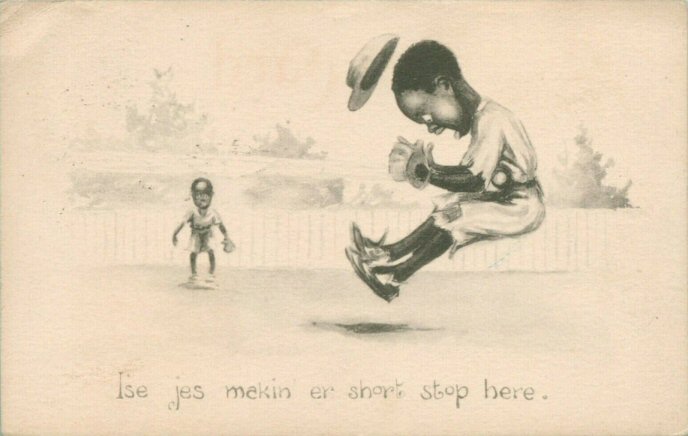 I'se jes makin' er short stop here.